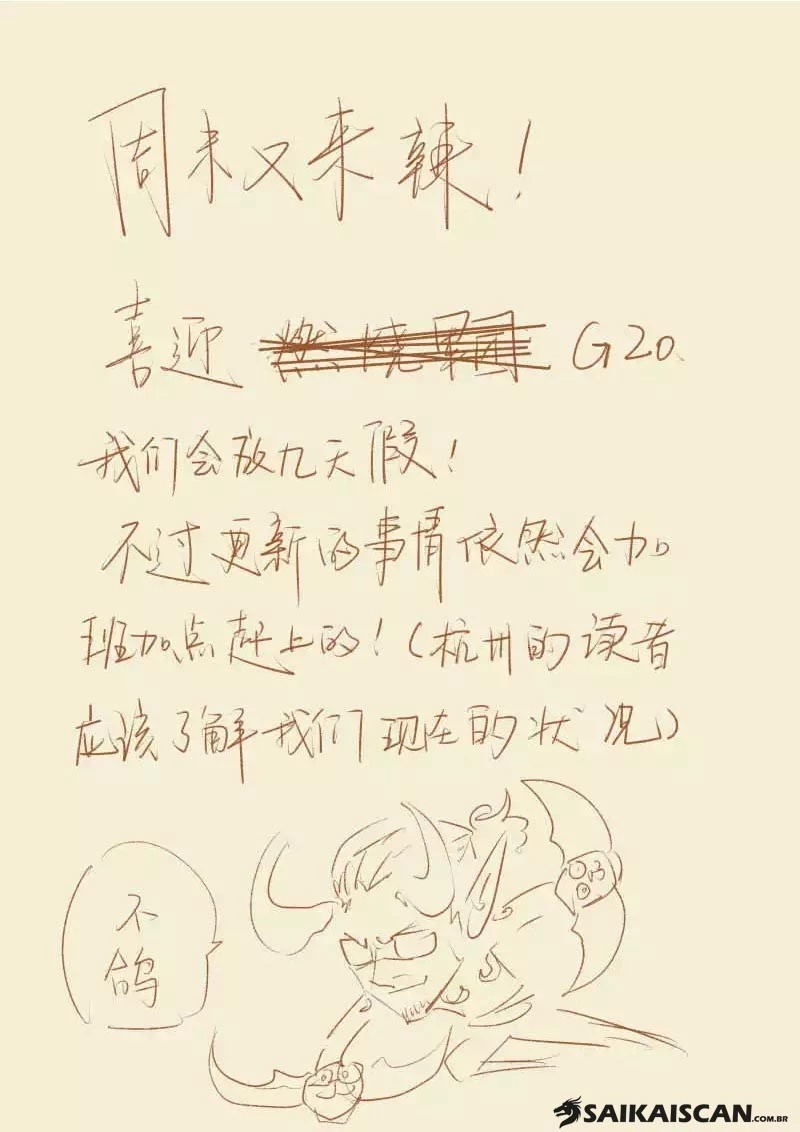 周末又来辣！
喜迎 燃烧军团 G20、
我们会放九天假！
不过更新的事情依然会加
班加点赶上的！（杭州的读者
应该了解我们现在的状况）
不
鸽
SAIKAISCAN.COM.BR